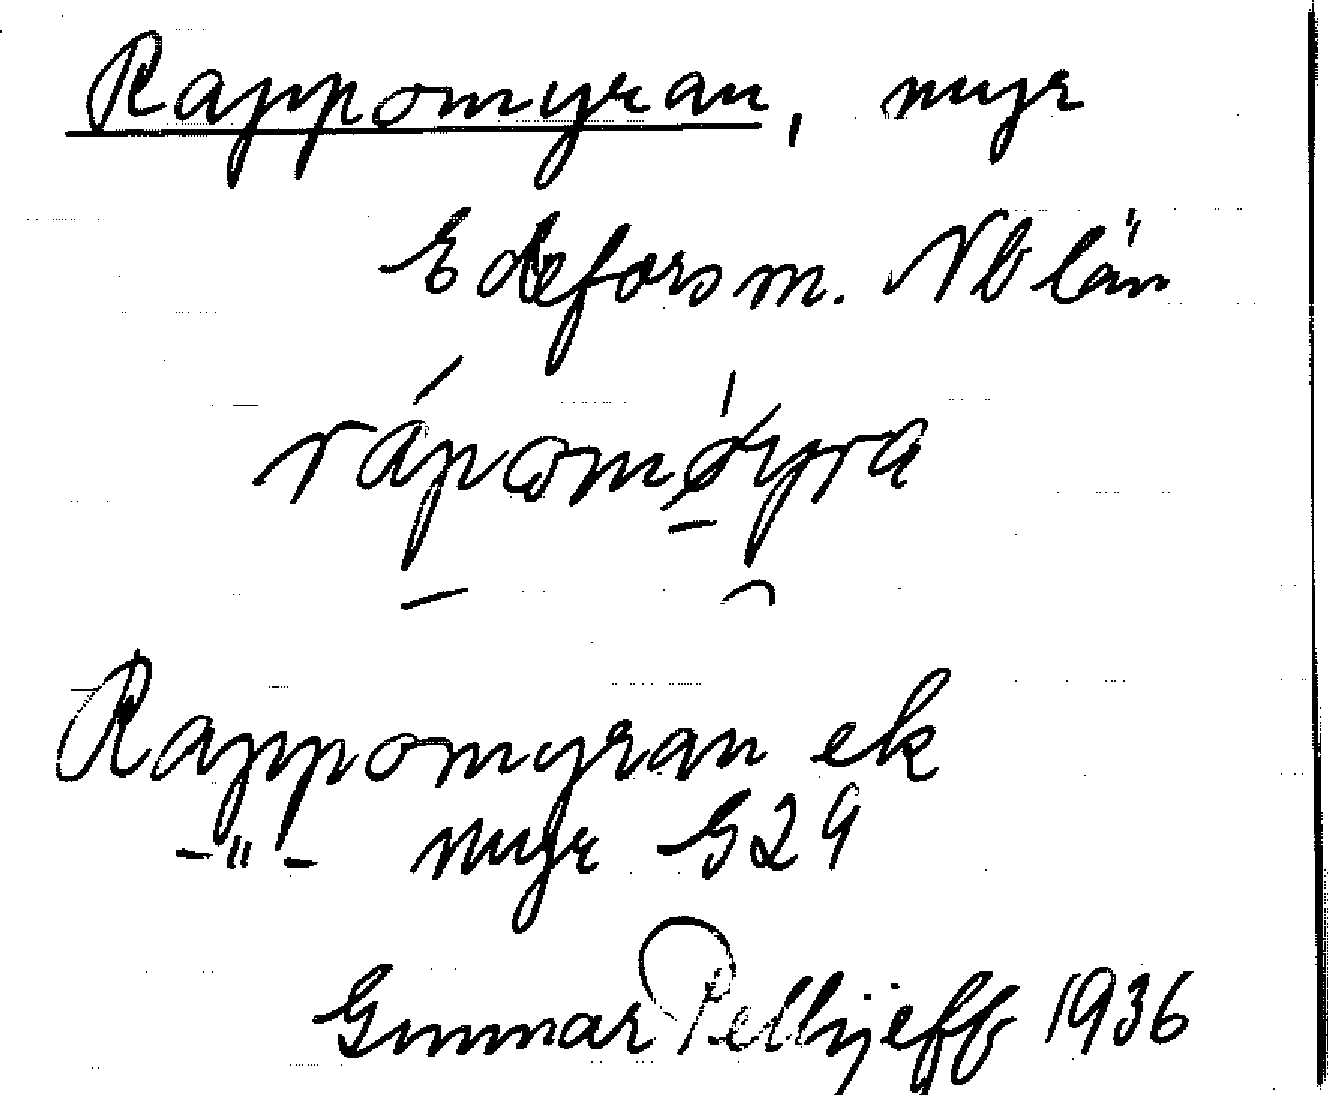 Rappomyran, myr
Edefors m. Nb län
Rappomyran ek
-"- myr G29
Gunnar Pellijeff 1936